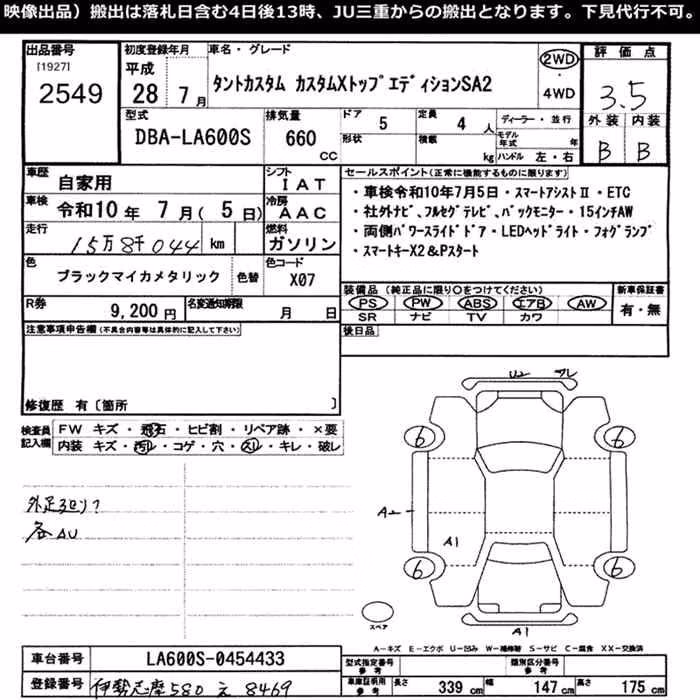 映像出品）搬出は落札日含む4日後13時、JU三重からの搬出となります。下見代行不可。
出品番号
[1927]
2549
初度登録年月
平成
28 年 7 月
車名・グレード
タントカスタム カスタムXトップエディションSA2
2WD
・
4WD
評価点
3.5
外装 内装
B B
型式
DBA-LA600S
排気量
660
CC
ドア
5
定員
4 人
形状
積載
kg
ディーラー・並行
モデル年式 年
ハンドル 左・右
車歴
自家用
シフト
IAT
車検
令和10年 7月( 5日)
冷房
AAC
走行
15万8千044 km
燃料
ガソリン
色
ブラックマイカメタリック
色替
色コード
X07
R券
9,200円
名変通知期限
月 日
セールスポイント(正常に機能するものに限ります)
・車検令和10年7月5日・スマートアシストⅡ・ETC
・社外ナビ、フルセグテレビ、バックモニター・15インチAW
・両側パワースライドドア・LEDヘッドライト・フォグランプ
・スマートキーX2＆Pスタート
装備品（純正品に限り○をつけてください）
PS PW ABS エアB AW
SR ナビ TV カワ
新車保証書
有・無
後日品
注意事項申告欄(不具合内容等は具体的に記入して下さい)
修復歴 有〔箇所 〕
検査員記入欄
FW キズ・飛石・ヒビ割・リペア跡・×要
内装 キズ・汚レ・コゲ・穴・スレ・キレ・破レ
各AU
U2
6
6
A2
A1
6
6
A1
スペア
A-キズ E-エクボ U-凹み W-補修跡 S-サビ C-腐食 XX-交換済
車台番号
LA600S-0454433
登録番号
伊勢志摩580 え 8469
型式指定番号
参考
類別区分番号
参考
車庫証明用
参考
長さ 339 cm
幅 147 cm
高さ 175 cm